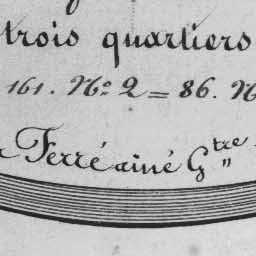 trois quartiers
161. N° 2 = 86. N
Ferré ainé G.tre